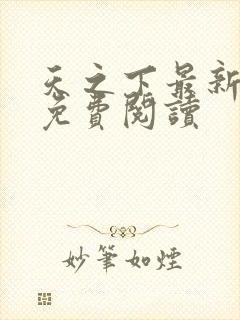 天之下最新
免費閱讀
妙筆如煙